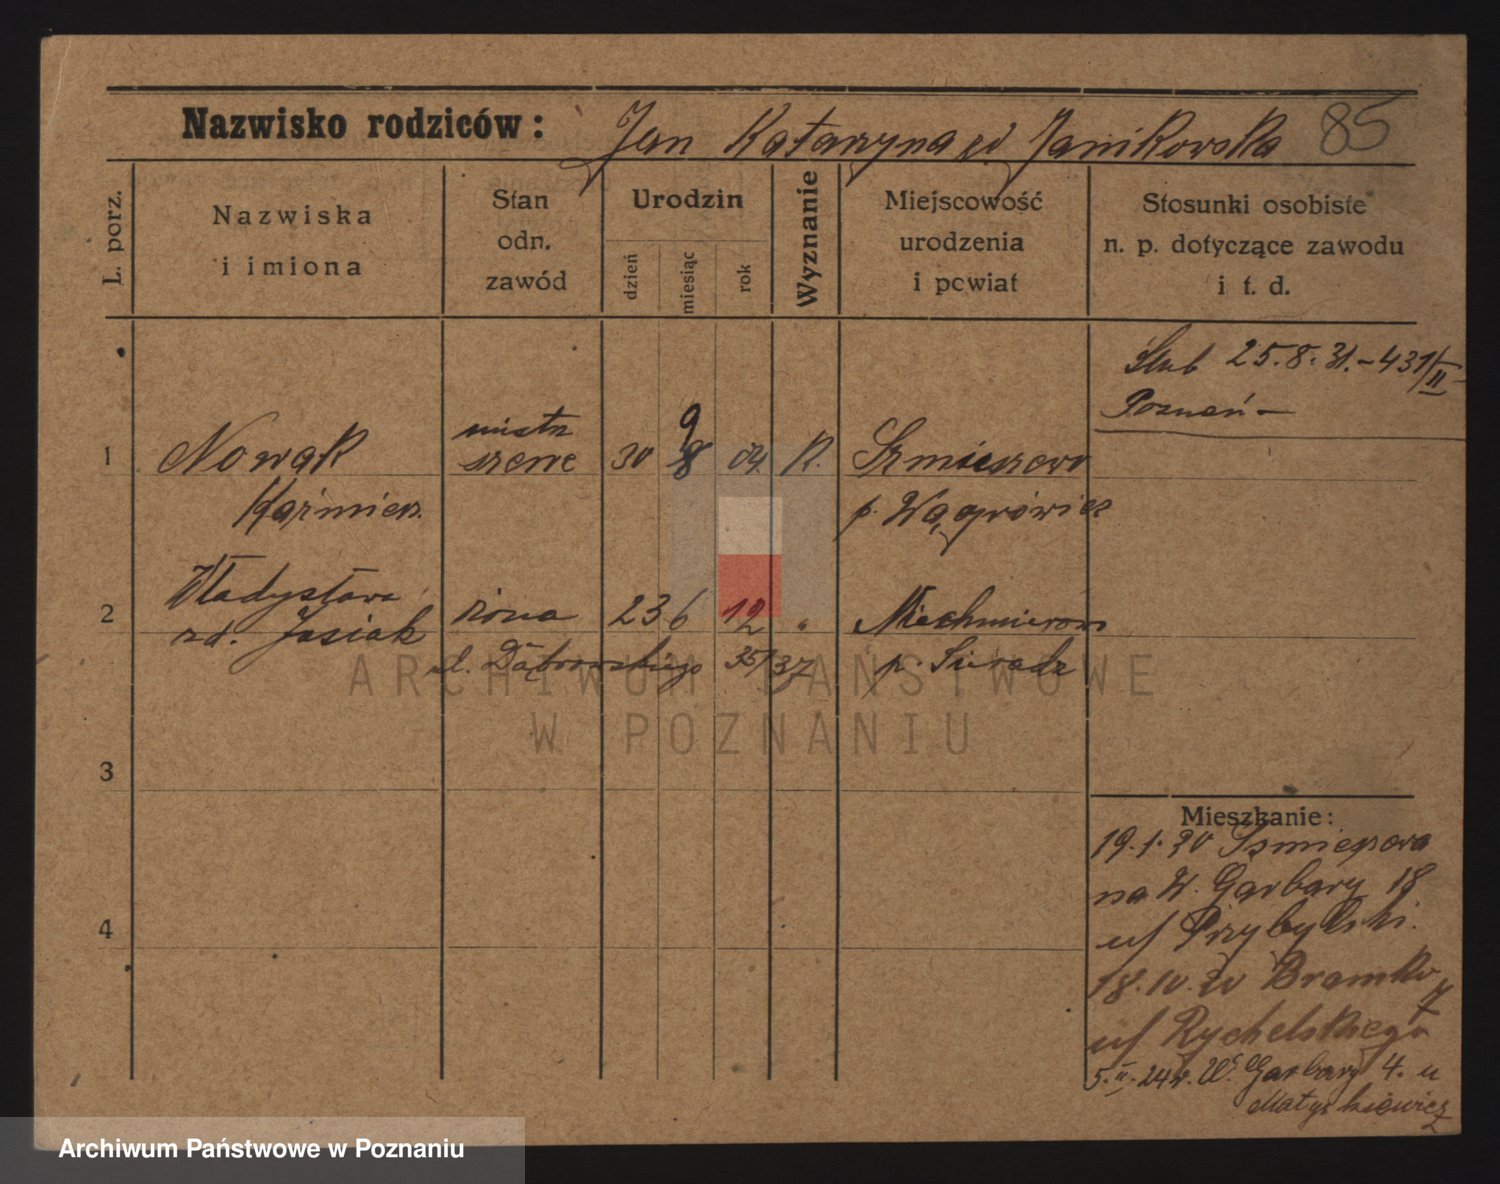 Nazwisko rodziców: Jan Katarzyna zd Janikowska 85
L. porz.
Nazwiska
i imiona
Stan
odn.
zawód
Urodzin
dzień
miesiąc
rok
Wyznanie
Miejscowość
urodzenia
i powiat
Stosunki osobiste
n. p. dotyczące zawodu
i t. d.
Ślub 25.8.31.-431/II
Poznań-
1 Nowak
Kaźmierz.
mistrz
szewc
30 9 8 04. R.
p. Wągrówiec
2 Władysława
zd. Jasiak
żona 23 6 12 "
ul. Dąbrowskiego 35/37
p. Sieradz
3
4
Mieszkanie:
19.1.20
na W. Garbary 18
u/ Przybylski.
18.10.20
u/ Rychelskiego
5.II.24r. W. Garbary 4. u
Matyskiewicz
ARCHIWUM PAŃSTWOWE
W POZNANIU
Archiwum Państwowe w Poznaniu